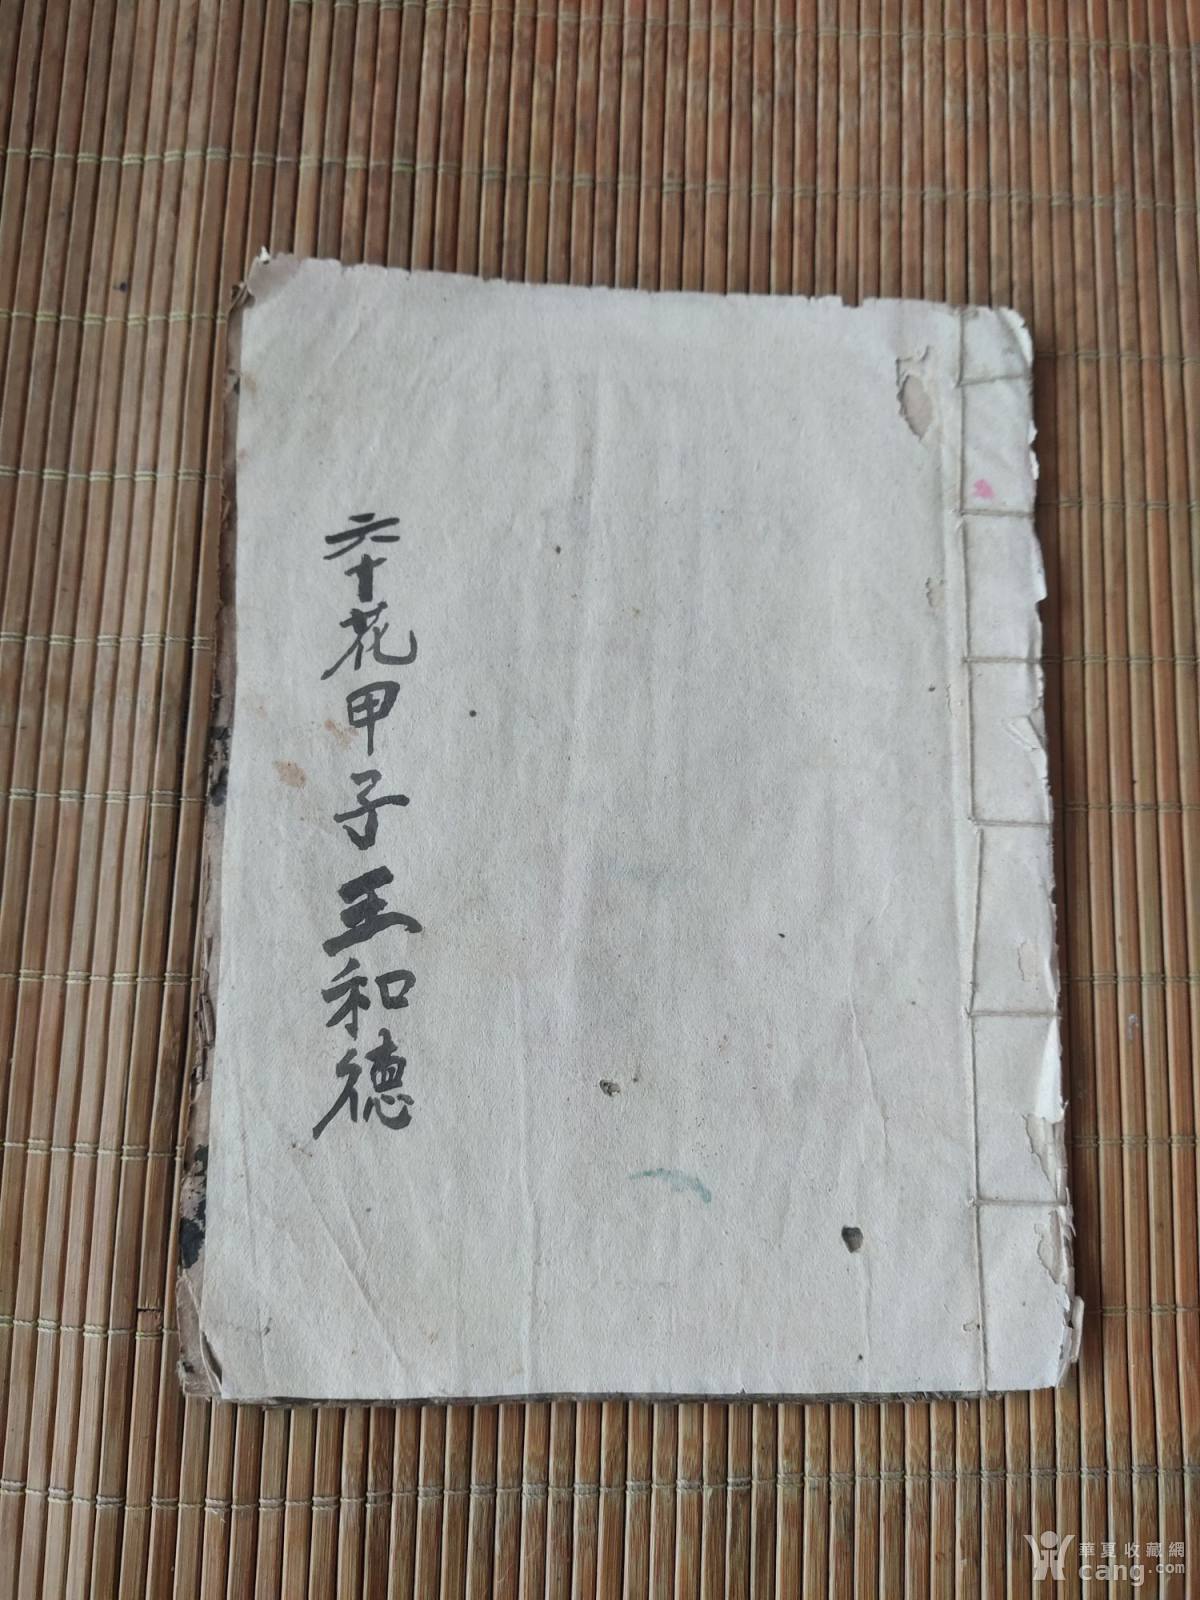 六十花甲子王和德
華夏收藏網
cang.com